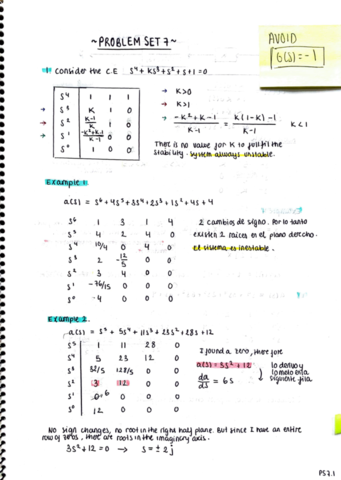 ~ PROBLEM SET 7 ~
AVOID
G(s) = -1
Consider the C.E s⁴ + Ks³ + s² + s + 1 = 0
s⁴ 1 1 1
→ s³ K 1 0
→ s² K-1/K 1 0
→ s¹ -K²+K-1/K-1 0 0
s⁰ 1 0 0
→ K>0
→ K>1
→ -K²+K-1/K-1 = K(1-K)-1/K-1 K<1
Ther is no value for K to fulfil the
stability. System always unstable.
Example 1.
a(s) = s⁶ + 4s⁵ + 3s⁴ + 2s³ + s² + 4s + 4
s⁶ 1 3 1 4
s⁵ 4 2 4 0
s⁴ 10/4 0 4 0
s³ 2 -12/5 0 0
s² 3 4 0 0
s¹ -76/15 0 0 0
s⁰ 4 0 0 0
2 cambios de signo. Por lo tanto
existen 2 raíces en el plano dercho.
el sistema es inestable.
Example 2.
a(s) = s⁵ + 5s⁴ + 11s³ + 23s² + 28s + 12
s⁵ 1 11 28 0
s⁴ 5 23 12 0
s³ 32/5 128/5 0 0
s² 3 12 0 0
s¹ 0 6 0 0 0
s⁰ 12 0 0 0
I found a zero, therefore
a(s) = 3s² + 12
da/ds = 6s
lo derivo y
lo meto en la
siguiente fila
No sign changes, no root in the right half plane. But since I have an entire
row of zeros, there are roots in the imaginary axis.
3s² + 12 = 0 → s = ± 2j
PS7.1